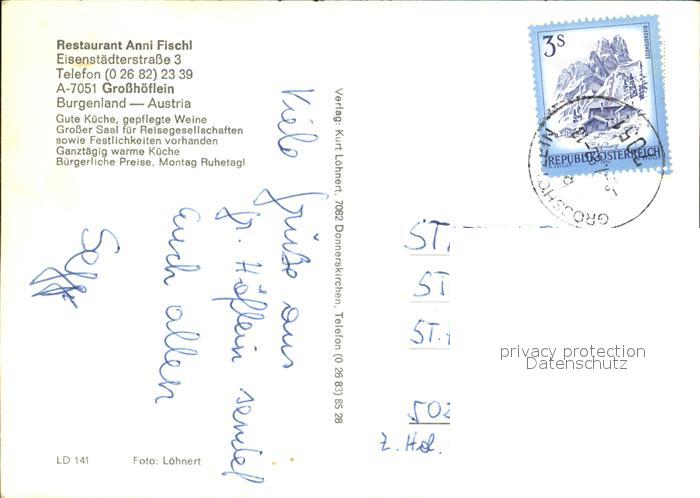 Restaurant Anni Fischl
Eisenstädterstraße 3
Telefon (0 26 82) 23 39
A-7051 Großhöflein
Burgenland — Austria
Gute Küche, gepflegte Weine
Großer Saal für Reisegesellschaften
sowie Festlichkeiten vorhanden
Ganztägig warme Küche
Bürgerliche Preise, Montag Ruhetag!
Viele
Grüße aus
Gr. Höflein sendet
Euch allen
Sepp
LD 141
Foto: Löhnert
Verlag: Kurt Löhnert, 7082 Donnerskirchen, Telefon (0 26 83) 85 28
3S
REPUBLIK ÖSTERREICH
GROSSHÖFLEIN
7051
ST
ST
ST.
502
z. Hd.
privacy protection
Datenschutz